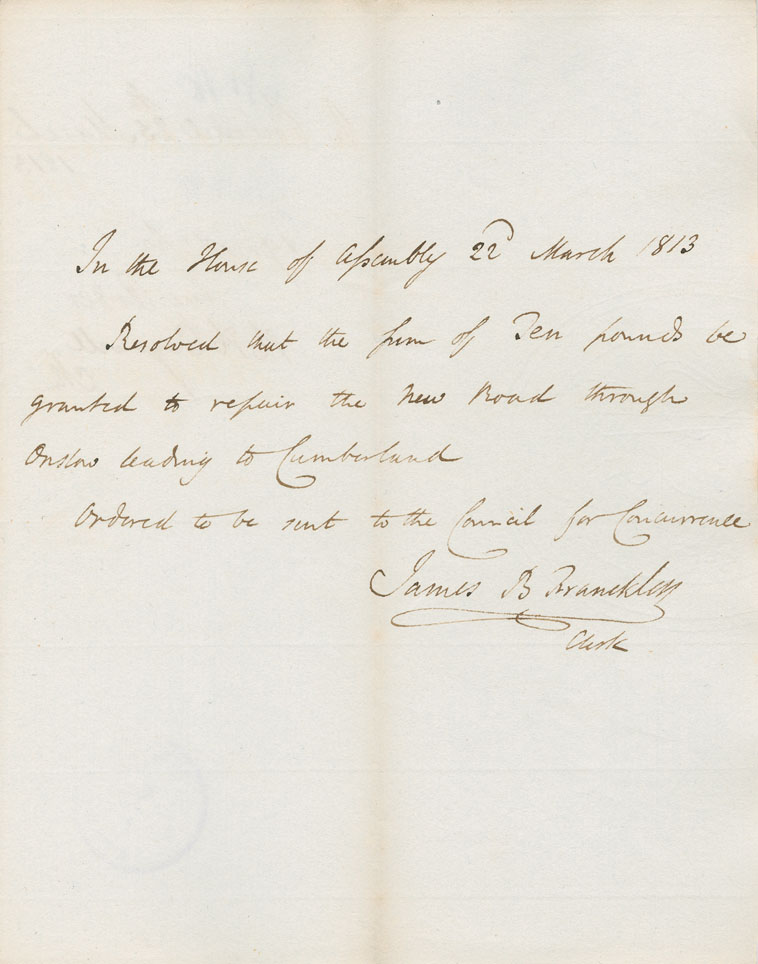 In the House of Assembly 22d March 1813
Resolved that the sum of Ten pounds be
granted to repair the New Road through
Onslow leading to Cumberland
Ordered to be sent to the Council for Concurrence
James B Francklin
Clerk